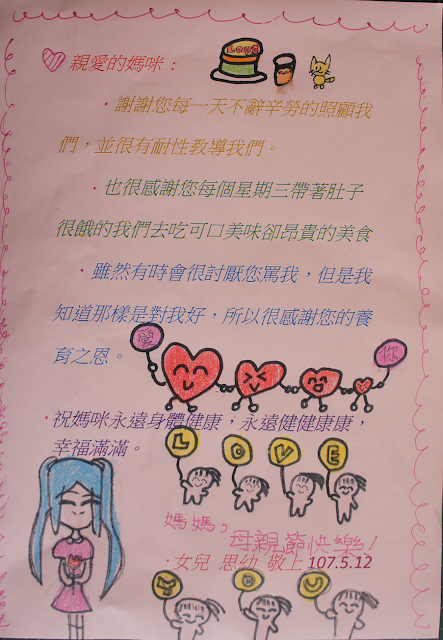 LOVE
親愛的媽咪：
·謝謝您每一天不辭辛勞的照顧我
們，並很有耐性教導我們。
·也很感謝您每個星期三帶著肚子
很餓的我們去吃可口美味卻昂貴的美食
·雖然有時會很討厭您罵我，但是我
知道那樣是對我好，所以很感謝您的養
育之恩。
愛 你
·祝媽咪永遠身體健康，永遠健健康康，
幸福滿滿。
LOVE
媽媽，母親節快樂！
·女兒 思幼 敬上 107.5.12
YOU